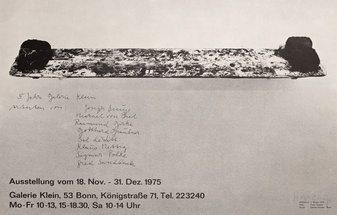 5 Jahre Galerie Klein
Arbeiten von Joseph Beuys
Michael von Biel
Raimund Girke
Gotthard Graubner
Sol LeWitt
Klaus Rettig
Sigmar Polke
Fred Sandback
Ausstellung vom 18. Nov. - 31. Dez. 1975
Galerie Klein, 53 Bonn, Königstraße 71, Tel. 223240
Mo-Fr 10-13, 15-18.30, Sa 10-14 Uhr